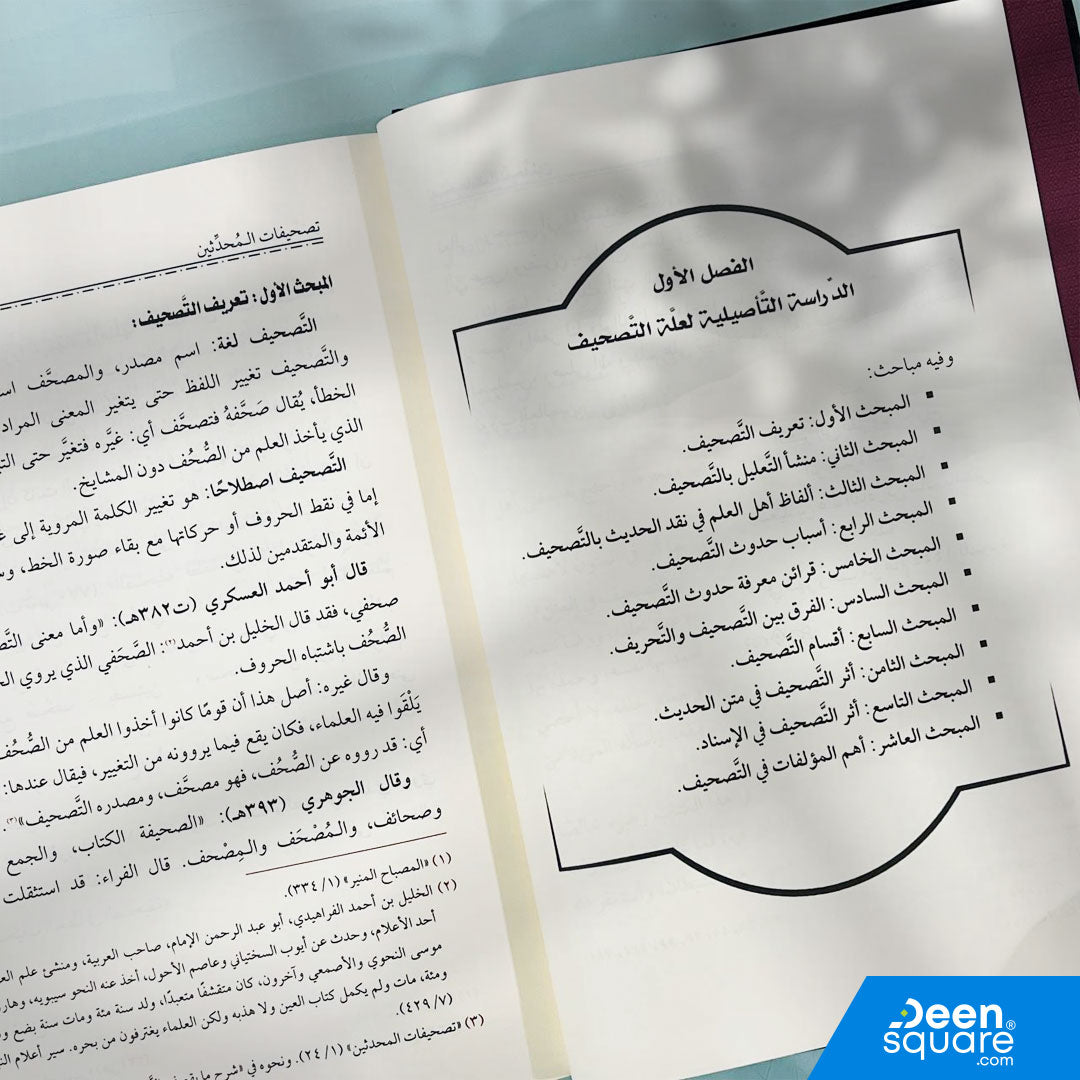 الفصل الأول
الدّراسة التَّأصيلية لعلَّة التَّصحيف
وفيه مباحث:
▪ المبحث الأول: تعريف التَّصحيف.
▪ المبحث الثاني: منشأ التَّعليل بالتَّصحيف.
▪ المبحث الثالث: ألفاظ أهل العلم في نقد الحديث بالتَّصحيف.
▪ المبحث الرابع: أسباب حدوث التَّصحيف.
▪ المبحث الخامس: قرائن معرفة حدوث التَّصحيف.
▪ المبحث السادس: الفرق بين التَّصحيف والتَّحريف.
▪ المبحث السابع: أقسام التَّصحيف.
▪ المبحث الثامن: أثر التَّصحيف في متن الحديث.
▪ المبحث التاسع: أثر التَّصحيف في الإسناد.
▪ المبحث العاشر: أهم المؤلفات في التَّصحيف.
تصحيفات الـمُحدِّثين
المبحث الأول: تعريف التَّصحيف:
التَّصحيف لغة: اسم مصدر، والمصحَّف
والتَّصحيف تغيير اللفظ حتى يتغير المعنى المراد
الخطأ، يُقال صَحَّفهُ فتصحَّف أي: غيَّره فتغيَّر حتى
الذي يأخذ العلم من الصُّحُف دون المشايخ.
التَّصحيف اصطلاحًا: هو تغيير الكلمة المروية إلى
إما في نقط الحروف أو حركاتها مع بقاء صورة الخط،
الأئمة والمتقدمين لذلك.
قال أبو أحمد العسكري (ت٣٨٢هـ): «وأما معنى
صحفي، فقد قال الخليل بن أحمد(٢): الصَّحَفي الذي يروي
الصُّحُف باشتباه الحروف.
وقال غيره: أصل هذا أن قومًا كانوا أخذوا العلم من الصُّحُف
يَلْقَوا فيه العلماء، فكان يقع فيما يروونه من التغيير، فيقال عندها:
أي: قد رووه عن الصُّحُف، فهو مصحَّف، ومصدره التَّصحيف»(٣).
وقال الجوهري (٣٩٣هـ): «الصحيفة الكتاب، والجمع
وصحائف، والـمُصْحَف والـمِصْحف. قال الفراء: قد استثقلت
(١) «المصباح المنير» (١/ ٣٣٤).
(٢) الخليل بن أحمد الفراهيدي، أبو عبد الرحمن الإمام، صاحب العربية، ومنشئ علم
أحد الأعلام، وحدث عن أيوب السختياني وعاصم الأحول، أخذ عنه النحو سيبويه،
موسى النحوي والأصمعي وآخرون، كان متقشفًا متعبدًا، ولد سنة مئة ومات سنة بضع
ومئة، مات ولم يكمل كتاب العين ولا هذبه ولكن العلماء يغترفون من بحره. سير أعلام
(٧/ ٤٢٩).
(٣) «تصحيفات المحدثين» (١/ ٢٤). ونحوه في «شرح ما
Deen®
square
.com